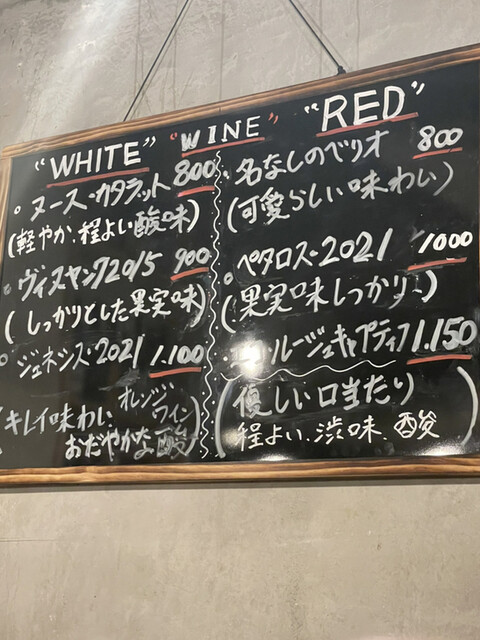 "WHITE" "WINE" "RED"
ヌース・カタラット 800
(軽やか、程よい酸味)
ヴィヌヤング2015 900
(しっかりとした果実味)
ジェネシス・2021 1.100
(キレイ味わい オレンジワイン
おだやかな酸)
名なしのベリオ 800
(可愛らしい味わい)
ペタロス・2021 1000
(果実味しっかり、)
ルージュキャプティフ 1.150
(優しい口当たり
程よい、渋味、酸)